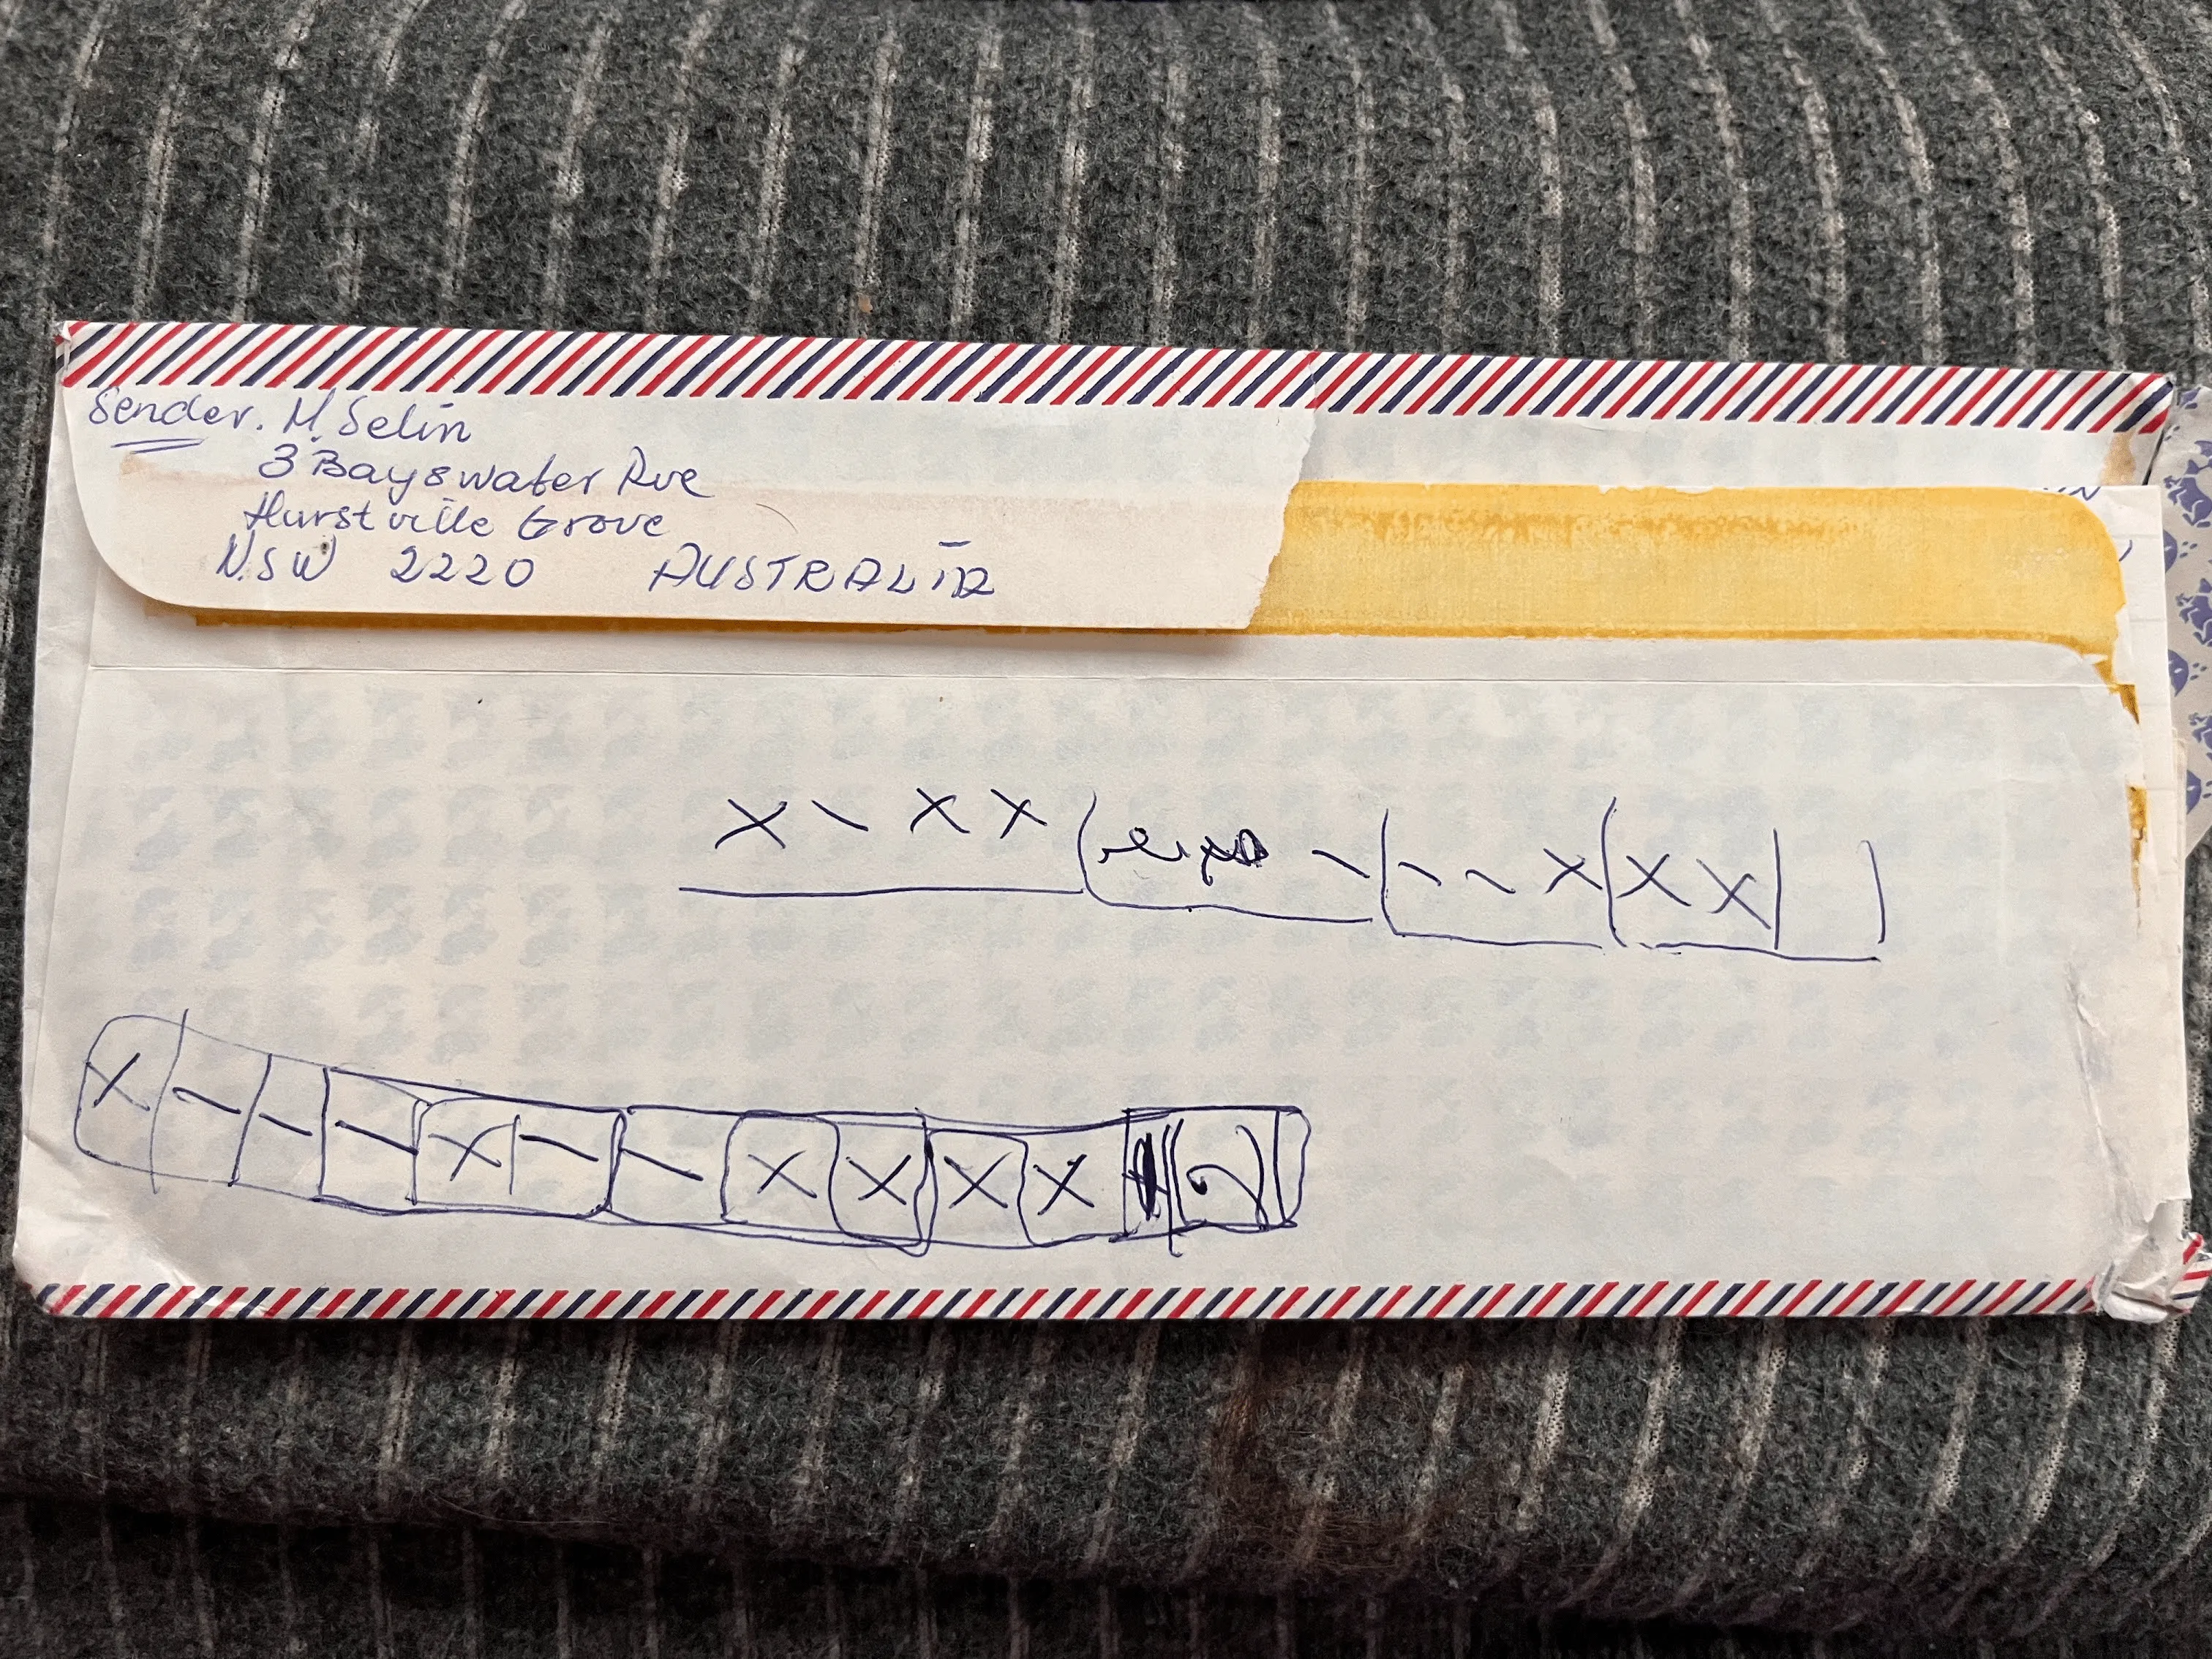 Sender. M. Selin
3 Bayswater Ave
Hurstville Grove
N.S.W 2220 AUSTRALIA
X - X X - - - X X X
X - - - X - - X X X X